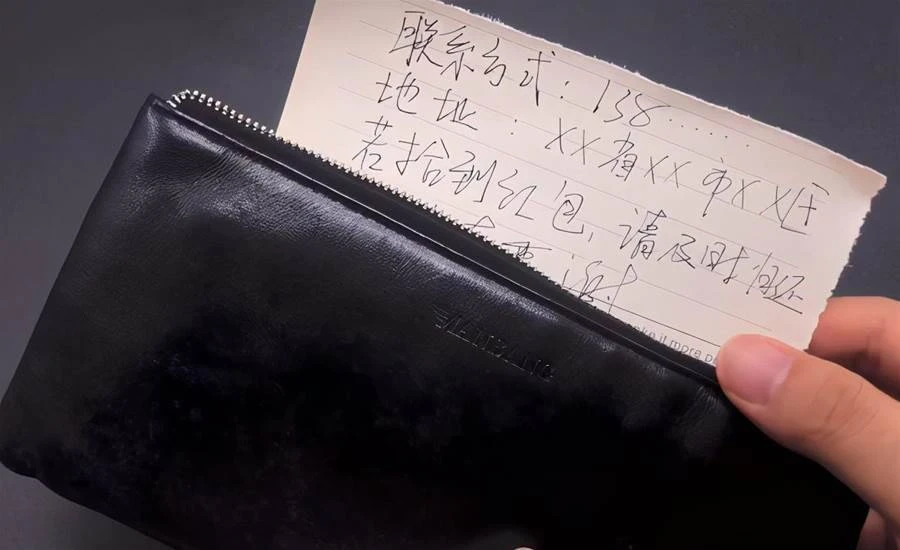 联系方式：138......
地址：XX省XX市XX区
若拾到红包，请及时归还
重谢
it more